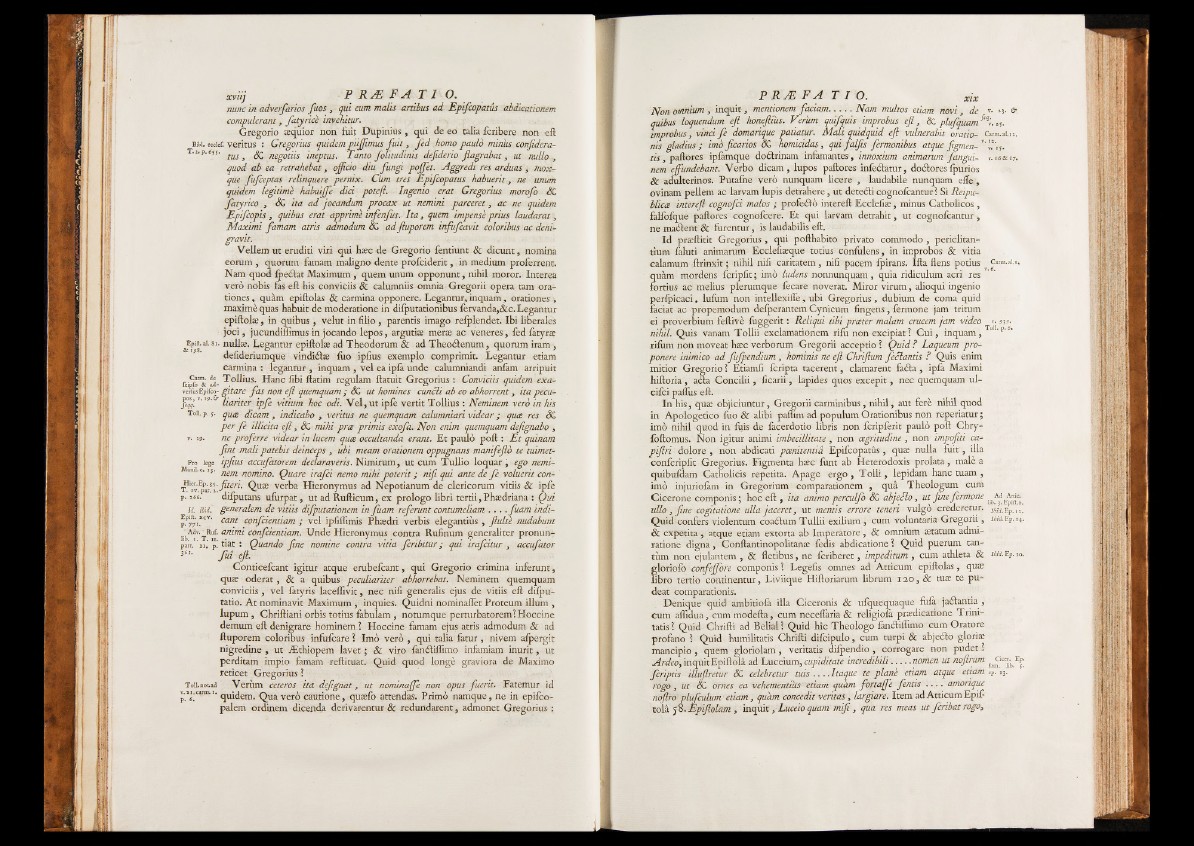 xviij P R Æ F A T I O.
nunc in adverſarios ſuos, qui eum malis artibus ad Epiſcopatûs abdicationem
compulerant, ſatyricè invehitur.
Gregorio æquior non fuit Dupinius, qui de eo talia ſcribere non eſt
Bibl. eccleſ.
veritus : Gregorius quidem piiſſimus fuit, ſed homo paulò minùs conſidera-
tus, & negotiis ineptus. Tanto ſolitudinis deſiderio flagrabat, ut nullo,
quod ab ea retrahebat, officio diu fungi poſſet. Aggredi res arduas, mox-
que ſuſceptas relinquere pernix. Cùm tres Epiſcopatus habuerit, ne unum
quidem legitimè habuiſſe dici poteſt. Ingenio erat Gregorius moroſo &
ſatyrico, & ita ad jocandum procax ut nemini parceret, ac ne quidem
Epiſcopis, quibus erat apprimè infenſus. Ita, quem impensè prius laudarat,
Maximi famam atris admodum & ad ſtuporem infuſcavit coloribus ac deni-
gravit.
Vellem ut eruditi viri qui hæc de Gregorio ſentiunt & dicunt, nomina
eorum, quorum famam maligno dente proſciderit, in medium proferrent.
Nam quod ſpectat Maximum, quem unum opponunt, nihil moror. Interea
verò nobis fas eſt his conviciis & calumniis omnia Gregorii opera tam ora-
tiones, quàm epiſtolas & carmina opponere. Legantur, inquam, orationes,
maximè quas habuit de moderatione in diſputationibus ſervanda, &c. Legantur
epiſtolæ, in quibus, velut in filio, parentis imago reſplendet. Ibi liberales
joci, jucundiſſimus in jocando lepos, argutiæ meræ ac veneres, ſed ſatyræ
nullæ. Legantur epiſtolæ ad Theodorum & ad Theoctenum, quorum iram,
deſideriumque vindictæ ſuo ipſius exemplo comprimit. Legantur etiam
carmina : legantur, inquam, vel ea ipſa unde calumniandi anſam arripuit
Tollius. Hanc ſibi ſtatim regulam ſtatuit Gregorius : Conviciis quidem exa-
gitare fas non eſt quemquam ; & ut homines cuncti ab eo abhorrent, ita pecu-
liariter ipſe vitium hoc odi. Vel, ut ipſe vertit Tollius : Neminem verò in his
Toll. p. 5.
quæ dicam, indicabo, veritus ne quemquam calumniari videar ; quæ res &
per ſe illicita eſt, & mihi præ primis exoſa. Non enim quemquam deſignabo,
v. 19.
ne proferre videar in lucem quæ occultanda erant. Et paulò poſt : Et quinam
ſint mali patebit deinceps, ubi meam orationem oppugnans manifeſtò te tuimet-
ipſius accuſatorem declaraveris. Nimirum, ut cum Tullio loquar, ego nemi-
nem nomino. Quare iraſci nemo mihi poterit ; niſi qui ante de ſe voluerit con-
fiteri. Quæ verba Hieronymus ad Nepotianum de clericorum vitiis & ipſe
diſputans uſurpat, ut ad Ruſticum, ex prologo libri tertii, Phædriana : Qui
generalem de vitiis diſputationem in ſuam referunt contumeliam . . . . ſuam indi-
cant conſcientiam ; vel ipſiſſimis Phædri verbis elegantiùs, ſtultè nudabunt
animi conſcientiam. Unde Hieronymus contra Rufinum generaliter pronun-
tiat : Quando ſine nomine contra vitia ſcribitur ; qui iraſcitur, accuſator
ſui eſt.
Conticeſcant igitur atque erubeſcant, qui Gregorio crimina inferunt,
quæ oderat, & a quibus peculiariter abhorrebat. Neminem quemquam
conviciis, vel ſatyris laceſſivit, nec niſi generalis ejus de vitiis eſt diſpu-
tatio. At nominavit Maximum, inquies. Quidni nominaſſet Proteum illum,
lupum, Chriſtiani orbis totius fabulam, notumque perturbatorem ? Hoccine
demum eſt denigrare hominem ? Hoccine famam ejus atris admodum & ad
ſtuporem coloribus infuſcare ? Imò verò, qui talia fatur, nivem aſpergit
nigredine, ut Æthiopem lavet ; & viro ſanctiſſimo infamiam inurit, ut
perditam impio famam reſtituat. Quid quod longè graviora de Maximo
reticet Gregorius !
Verùm ceteros ita deſignat, ut nominaſſe non opus fuerit. Fatemur id
quidem. Qua verò cautione, quæſo attendas. Primò namque, ne in epiſco-
palem ordinem dicenda derivarentur & redundarent, admonet Gregorius :
P R Æ F A T I O. xix
Non omnium, inquit, mentionem faciam . . . . . Nam multos etiam novi, de
quibus loquendum eſt honeſtiùs. Verùm quiſquis improbus eſt, & pluſquam
improbus, vinci ſe domarique patiatur. Mali quidquid eſt vulnerabit oratio-
nis gladius ; imò ſicarios & homicidas, qui falſis ſermonibus atque figmen-
tis, paſtores ipſamque doctrinam infamantes, innoxium animarum ſangui-
v. 16 & 17.
nem effundebant. Verbo dicam, lupos paſtores inſectatur, doctores ſpurios
& adulterinos. Putaſne verò nunquam licere, laudabile nunquam eſſe,
ovinam pellem ac larvam lupis detrahere, ut detecti cognoſcantur ? Si Reipu-
blicæ intereſt cognoſci malos ; profectò intereſt Eccleſiæ, minus Catholicos,
falſoſque paſtores cognoſcere. Et qui larvam detrahit, ut cognoſcantur,
ne mactent & furentur, is laudabilis eſt.
Id præſtitit Gregorius, qui poſthabito privato commodo, periclitan-
tium ſaluti animarum Eccleſiæque totius conſulens, in improbos & vitia
calamum ſtrinxit ; nihil niſi caritatem, niſi pacem ſpirans. Iſta flens potius
quàm mordens ſcripſit ; imò ludens nonnunquam, quia ridiculum acri res
fortius ac melius plerumque ſecare noverat. Miror virum, alioqui ingenio
perſpicaci, luſum non intellexiſſe, ubi Gregorius, dubium de coma quid
faciat ac propemodum deſperantem Cynicum fingens, ſermone jam tritum
ei proverbium feſtivè ſuggerit : Reliqui tibi præter malam crucem jam video
nihil. Quis vanam Tollii exclamationem riſu non excipiat ? Cui, inquam,
riſum non moveat hæc verborum Gregorii acceptio ? Quid ? Laqueum pro-
ponere inimico ad ſuſpendium, hominis ne eſt Chriſtum ſectantis ? Quis enim
mitior Gregorio ? Etiamſi ſcripta tacerent, clamarent facta, ipſa Maximi
hiſtoria, acta Concilii, ſicarii, lapides quos excepit, nec quemquam ul-
ciſci paſſus eſt.
In his, quæ objiciuntur, Gregorii carminibus, nihil, aut ferè nihil quod
in Apologetico ſuo & alibi paſſim ad populum Orationibus non reperiatur ;
imò nihil quod in ſuis de ſacerdotio libris non ſcripſerit paulò poſt Chry-
ſoſtomus. Non igitur animi imbecillitate, non ægritudine, non impoſiti ca-
piſtri dolore, non abdicati pœnitentiâ Epiſcopatûs, quæ nulla fuit, illa
conſcripſit Gregorius. Figmenta hæc ſunt ab Heterodoxis prolata, malè a
quibuſdam Catholicis repetita. Apage ergo, Tolli, lepidam hanc tuam,
imò injurioſam in Gregorium comparationem, quâ Theologum cum
Cicerone componis ; hoc eſt, ita animo perculſo & abjecto, ut ſine ſermone
ullo, ſine cogitatione ulla jaceret, ut mentis errore teneri vulgò crederetur.
Quid confers violentum coactum Tullii exilium, cum voluntaria Gregorii,
& expetita, atque etiam extorta ab Imperatore, & omnium ætatum admi-
ratione digna, Conſtantinopolitanæ ſedis abdicatione ? Quid puerum tan-
tùm non ejulantem, & fletibus, ne ſcriberet, impeditum, cum athleta &
Ibid. Ep. 10.
glorioſo confeſſore componis ? Legeſis omnes ad Atticum epiſtolas, quæ
libro tertio continentur, Liviique Hiſtoriarum librum 120, & tuæ te pu-
deat comparationis.
Denique quid ambitioſa illa Ciceronis & uſquequaque fuſa jactantia,
cum aſſidua, cum modeſta, cum neceſſaria & religioſa prædicatione Trini-
tatis ? Quid Chriſti ad Belial ? Quid hic Theologo ſanctiſſimo cum Oratore
profano ? Quid humilitatis Chriſti diſcipulo, cum turpi & abjecto gloriæ
mancipio, quem gloriolam, veritatis diſpendio, corrogare non pudet ?
Ardeo, inquit Epiſtolâ ad Lucceium, cupiditate incredibili . . . . . nomen ut noſtrum
ſcriptis illuſtretur & celebretur tuis . . . . Itaque te planè etiam atque etiam
rogo, ut & ornes ea vehementiùs etiam quàm fortaſſe ſentis . . . . amorique
noſtro pluſculum etiam, quàm concedit veritas, largiare. Item ad Atticum Epiſ-
tolâ 58. Epiſtolam, inquit, Luceio quam miſi, qua res meas ut ſcribat rogo,